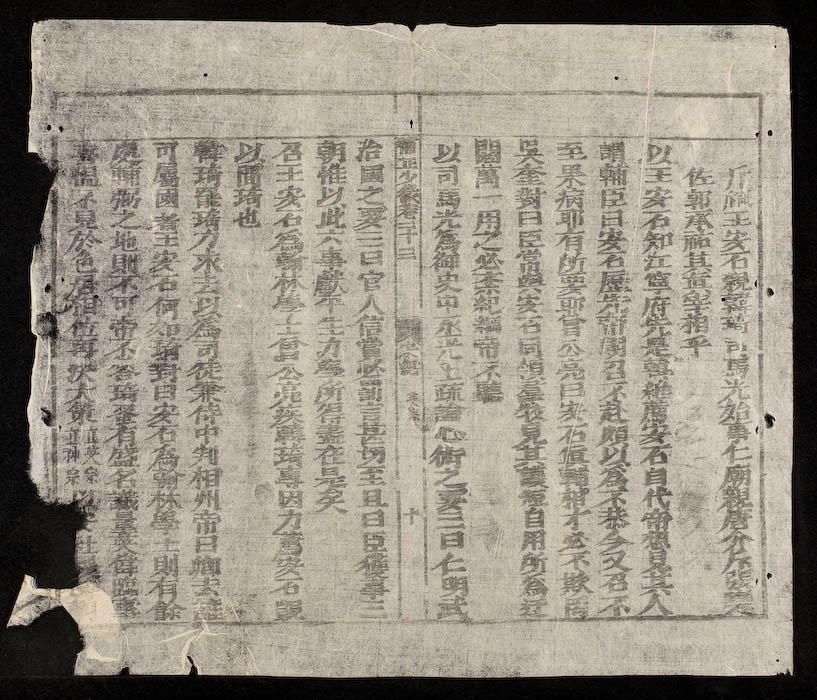 斥 王安石 韓琦司馬光始事仁廟觀唐介
佐郭承祐其豈宰相乎
以王安石知江寧府先是韓維薦安石自代帝想見其人
謂輔臣曰安石歷先帝朝召不赴頗以爲不恭今又召不
至果病耶有所要耶曾公亮曰安石眞輔相才必不欺罔
吳奎對曰臣嘗與安石同領群牧見其護短自用所爲迂
闊萬一用之必紊紀綱帝不聽
以司馬光爲御史中丞光上疏論心術之要三曰仁明武
卷二十三
十
治國之要三曰官人信賞必罰言甚切至且曰臣獲事三
朝惟以此六事獻平生力學所得盡在是矣
召王安石爲翰林學士曾公亮疾韓琦專因力薦安石覬
以間琦也
韓琦罷琦力求去以爲司徒兼侍中判相州帝曰卿去誰
可屬國者王安石何如琦對曰安石爲翰林學士則有餘
處輔弼之地則不可帝不答琦蚤有盛名識量英偉臨事
喜慍不見於色居相位再決大策 立英宗 立神宗 社